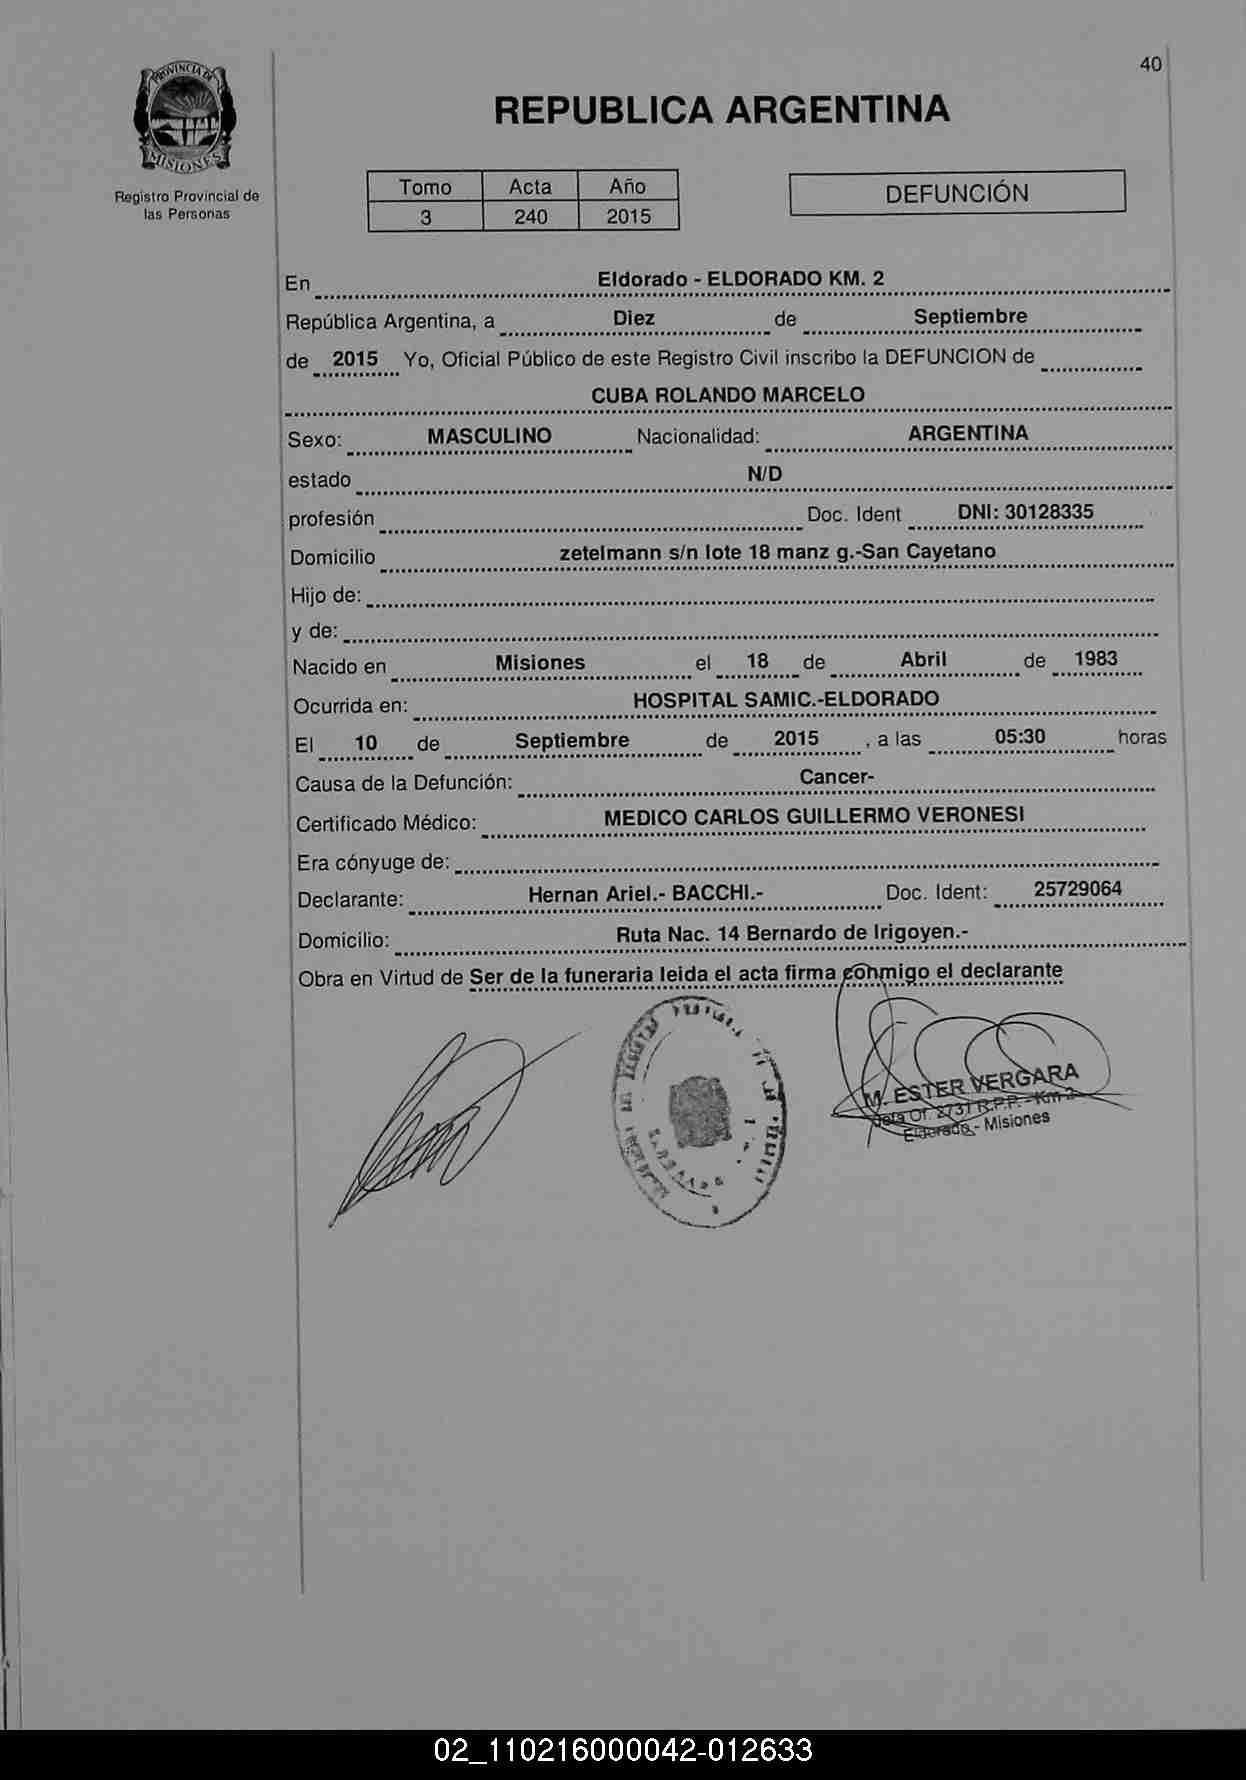 40
PROVINCIA DE
MISIONES
Registro Provincial de
las Personas
REPUBLICA ARGENTINA
Tomo Acta Año
3 240 2015
DEFUNCIÓN
En Eldorado - ELDORADO KM. 2
República Argentina, a Diez de Septiembre
de 2015 Yo, Oficial Público de este Registro Civil inscribo la DEFUNCION de
CUBA ROLANDO MARCELO
Sexo: MASCULINO Nacionalidad: ARGENTINA
estado N/D
profesión Doc. Ident DNI: 30128335
Domicilio zetelmann s/n lote 18 manz g.-San Cayetano
Hijo de:
y de:
Nacido en Misiones el 18 de Abril de 1983
Ocurrida en: HOSPITAL SAMIC.-ELDORADO
El 10 de Septiembre de 2015 , a las 05:30 horas
Causa de la Defunción: Cancer-
Certificado Médico: MEDICO CARLOS GUILLERMO VERONESI
Era cónyuge de:
Declarante: Hernan Ariel.- BACCHI.- Doc. Ident: 25729064
Domicilio: Ruta Nac. 14 Bernardo de Irigoyen.-
Obra en Virtud de Ser de la funeraria leida el acta firma conmigo el declarante
M. ESTER VERGARA
Jefa Of. 2731 R.P.P. - Km 2
Eldorado - Misiones
02_110216000042-012633